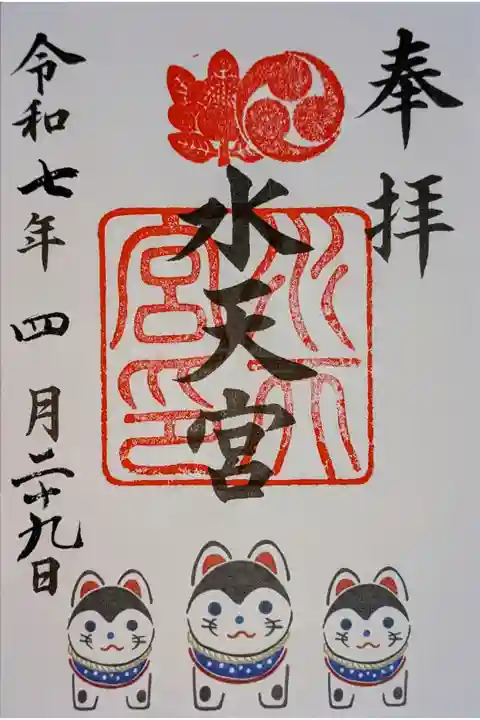 奉拝
水天宮
水天宮印
令和七年 四月二十九日